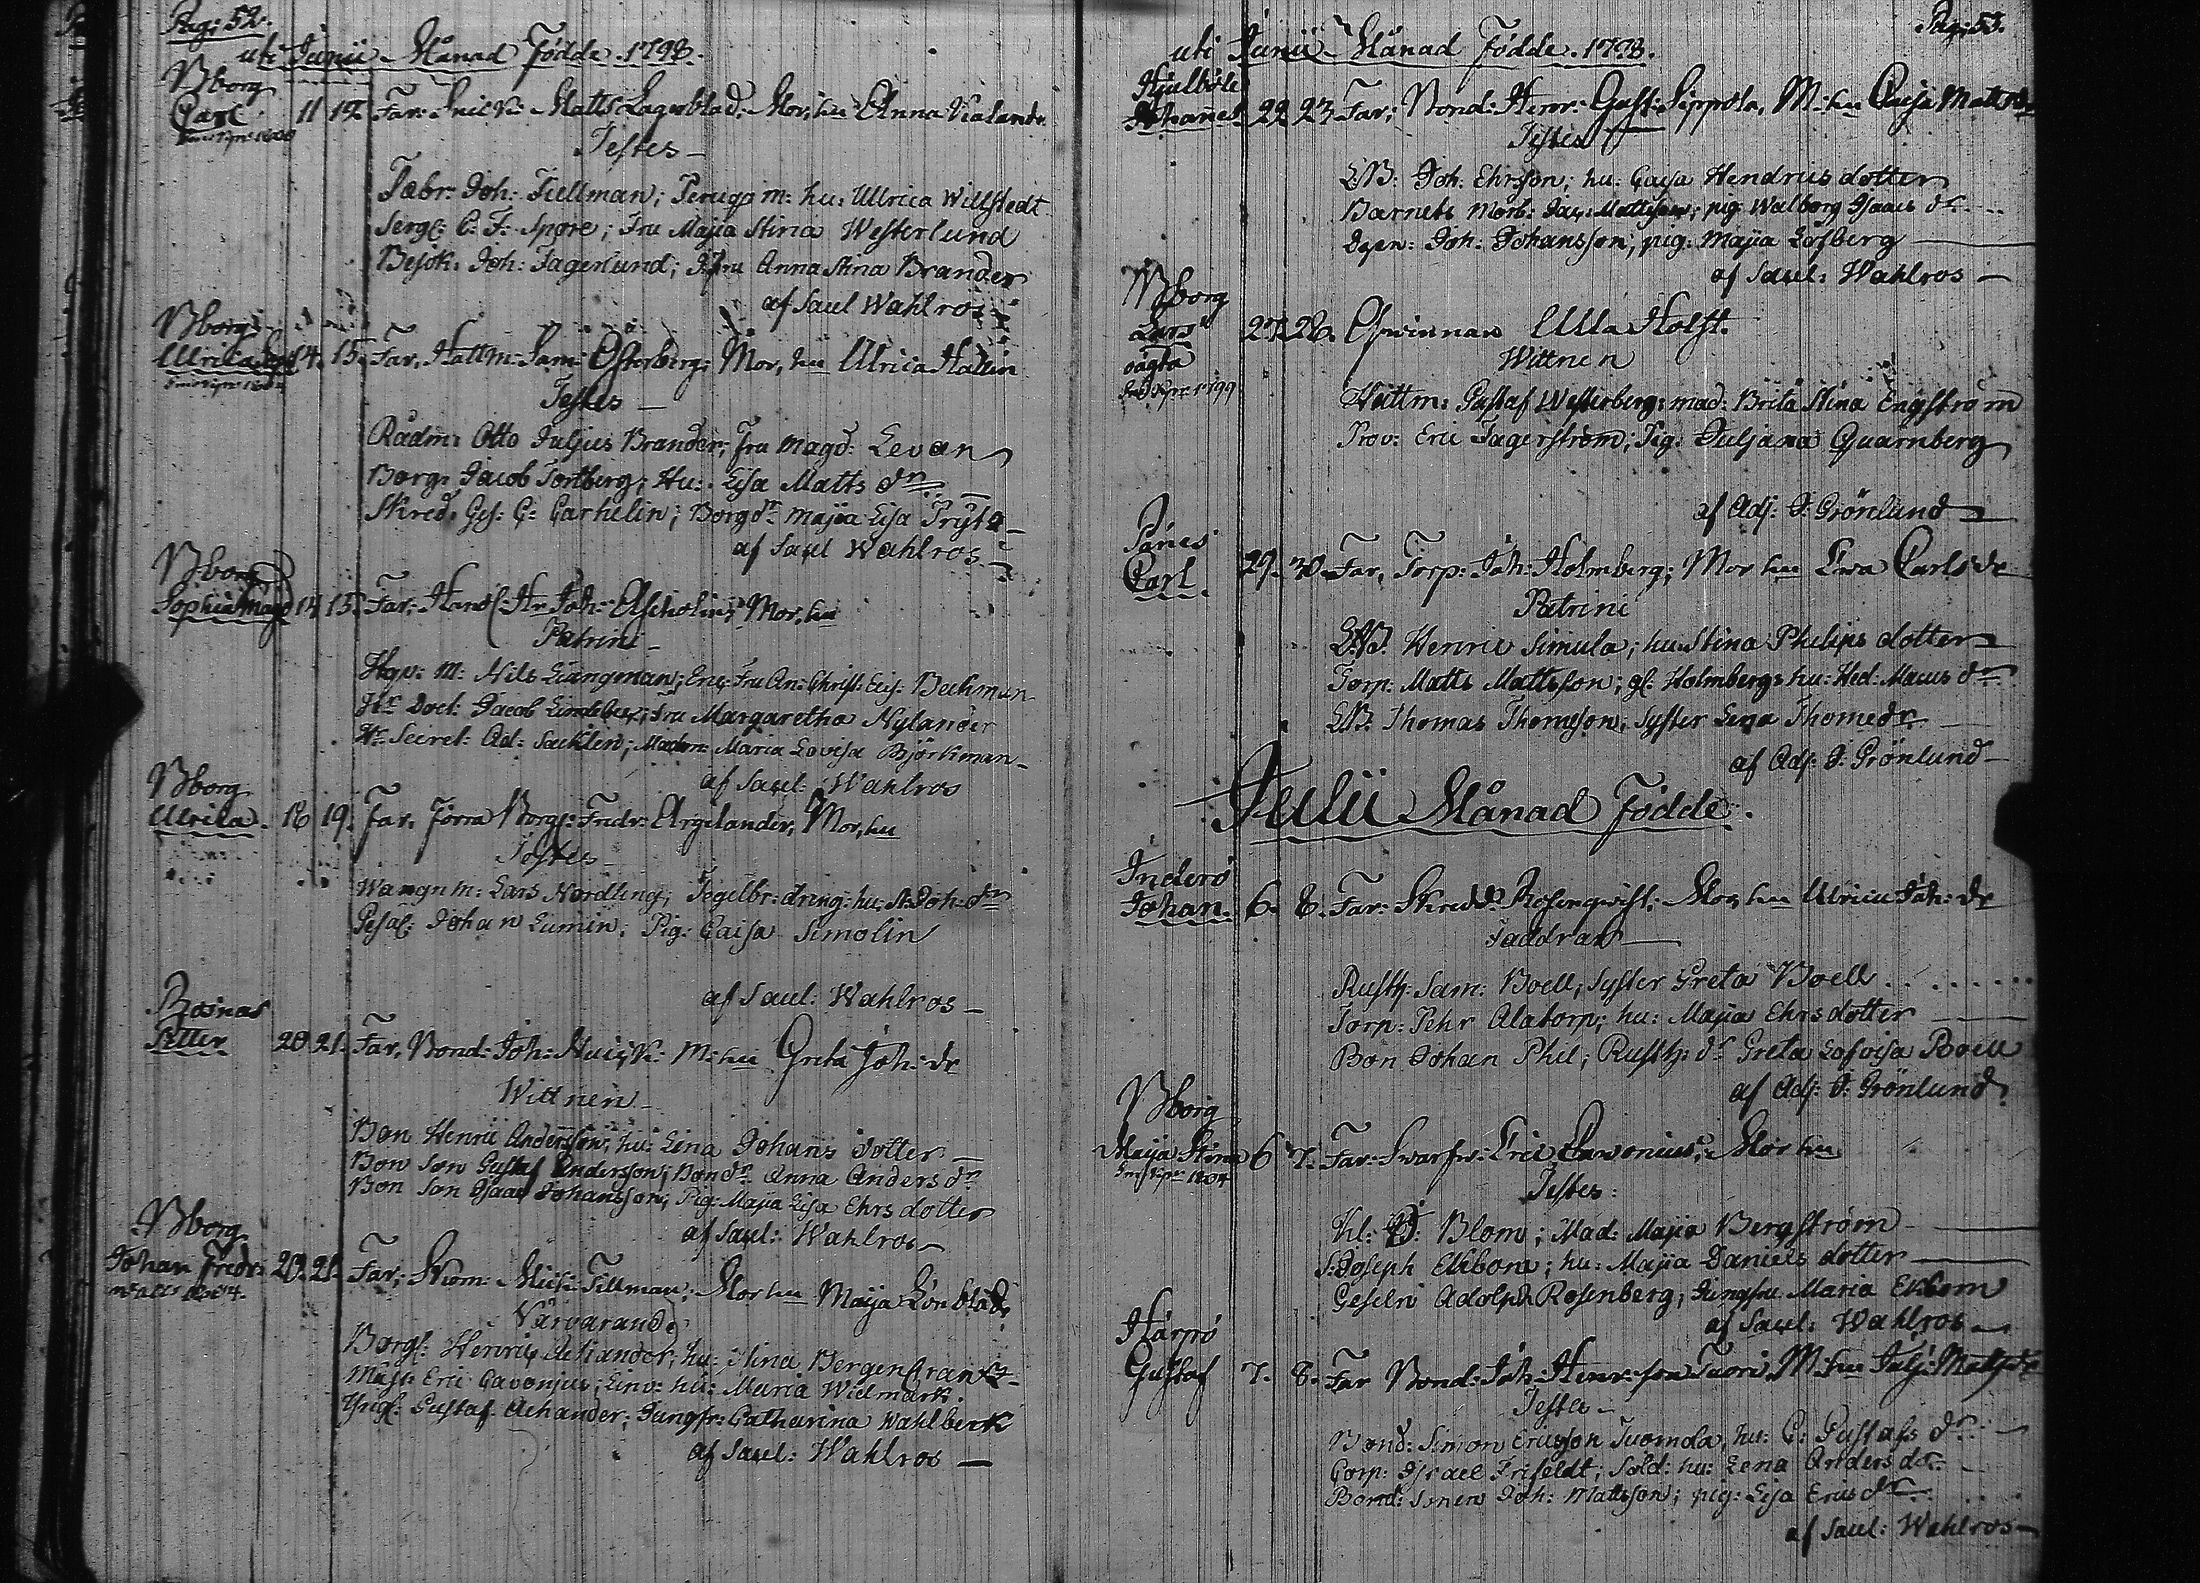 Pag: 52.
uti Junii Månad Födde 1798.
Bborg
Carl 11 12 Far: Snick: Matts Lagerblad; Mor, hu Anna Kialander
Testes
Fabr: Joh: Tillman; Peruqs m: hu: Ullrica Willstedt
Serg: C: F: Spore; Fru Majia Stina Westerlund
Besök: Joh: Fagerlund; Jfru Anna Stina Brander
af Sacel Wahlros
Bborg
Ulrika 14. 15. Far, Hattm: Sam: Österberg; Mor, hu Ulrica Hallin
Testes
Rådm: Otto Juljus Brander; fru Magd: Levan
Borg: Jacob Tortberg; Hu: Lisa Matts dr
Skred: Ges: C: Carhelin; Borg dr Majia Lisa Pryts
af Sacel Wahlros
Bborg
Sophia Magd 14 15. Far: Handl: Hr Joh: Ascholin; Mor, hu
Patrini
Nils Liangman; Fru An: Christ: Bechman
Hr Doct: Jacob; Fru Margaretha Nylander
Hr Secret: Ad: Sacklen; Madm: Maria Lovisa Björkman
af Sacel: Wahlros
Bborg
Ulrika. 16 19. Far, Förra Borg: Fredr: Argelander, Mor, hu
Testes
Wangn m: Lars Nordling; Tegelbr: dreng: hu: St: Joh: dr
Gesäl: Johan Lumin; Pig: Caisa Simolin
af Sacel: Wahlros
Bosnas
Petter 20. 21. Far, Bond: Joh: M: hu Greta Joh: dr
Wittnen
Bon Henric Andersson; hu: Lena Johans dotter
Bon Son Gustaf Andersson; Bon dr Anna Anders dr
Bon Son Isaac Johansson; Pig: Majia Lisa Ehrs dotter
af Sacel: Wahlros
Bborg
Johan Fredr: 20. 21. Far; Skom: Mich: Tillman; Mor hu Maija Lönblad
Närvarande
Borgl: Henric Achander; hu: Stina Bergenstrand
Mäst: Eric Cavonjus; Linv: hu: Maria Widmark
Yngl: Gustaf Achander; Jungfr: Catharina Wahlberk
af Sacel: Wahlros
Pag: 53.
uti Junii Månad Födde. 1798.
Hjulböle
Johannes 22. 23. Far; Bond: Henr: Gust: Sippola, M: hu Caisa Matts dr
Testes
L:B: Joh: Ehrsson; hu: Caisa Hendrics dotter
Barnets Morb: Jac: Mattsson; pig: Walborg Isaacs dr
Joh: Johansson; pig: Majia Löfberg
af Sacel: Wahlros
Bborg
Lars 27. 28. Qwinnan Ulla Holst.
oägta
Wittnen
Hattm: Gustaf Westerberg: mad: Brita Stina Engström
Prov: Eric Fagerström; Pig: Juljana Quarnberg
af Adj: J: Grönlund
Pänes
Carl. 29. 30. Far, Torp: Joh: Holmberg; Mor hu Ewa Carls dr
Patrini
L:B: Henric Simula; hu: Stina Philips dotter
Torp: Matts Mattsson; gl: Holmbergs hu: Hed: Macus dr
L:B: Thomas Thomsson; Syster Lena Thome dr
af Adj: J: Grönlund
Julii Månad Födde.
Inderö
Johan. 6. 8. Far: Skredd: Rosenqwist; Mor, hu Ulrica Joh: dr
Faddrar
Rusth: Sam: Boell; Syster Greta Boell
Torp: Pehr Alatorp; hu: Majia Ehrs dotter
Bon Johan Phil; Rusth: dr Greta Lofvisa Boell
af Adj: J: Grönlund
Bborg
Maija Stina 6 7. Far: Swarfw: Eric Cawonius; Mor hu
Testes:
Kl: D: Blom; Mad: Majia Bergström
S: Joseph Ekbone; hu: Majia Daniels dotter
Geseln Adolph Rosenberg; Jungfru Maria Ekbom
af Sacel: Wahlros
Härpö
Gustaf 7. 8. Far Bond: Joh: Henr: son Tuori, M: hu Julj: Matts dr
Testes
Bond: Simon Ericsson Tuomola, hu: C: Gustafs dr
Corp: Israel Frifeldt; Sold: hu: Lena Anders dr
Bond: Sonen Joh: Mattsson; pig: Lisa Erics dr
af Sacel: Wahlros